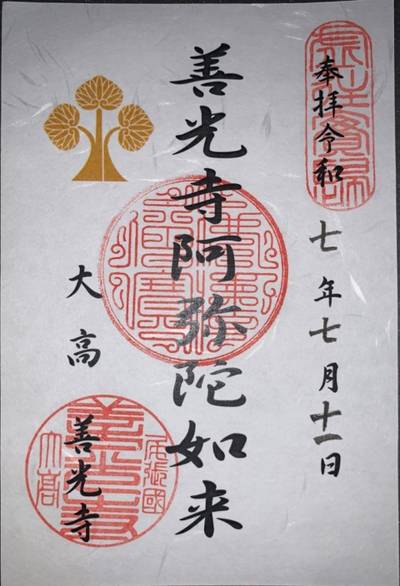 奉拝令和七年七月十一日
善光寺阿弥陀如来
大高
善光寺
尾張國
善光寺
大高